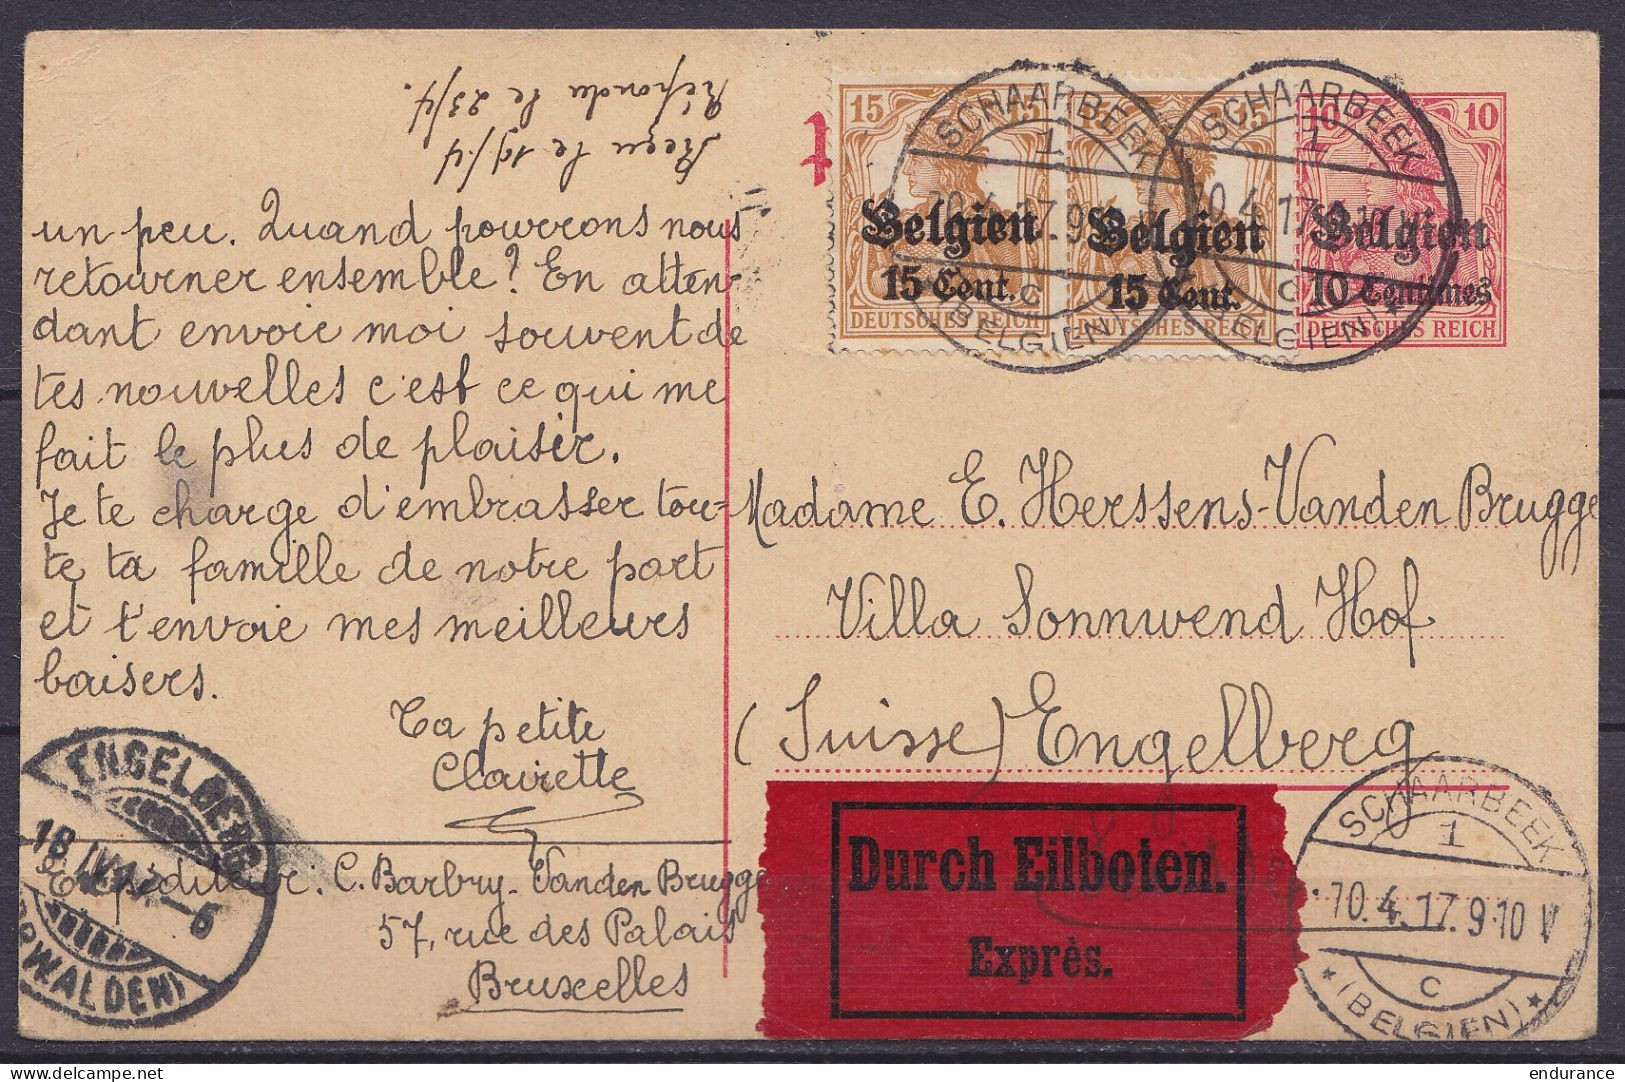 Répondu le 23/4.
Reçu le 19/4
un peu. Quand pourrons nous
retourner ensemble? En atten-
dant envoie moi souvent de
tes nouvelles c'est ce qui me
fait le plus de plaisir.
Je te charge d'embrasser tou-
te ta famille de notre part
et t'envoie mes meilleurs
baisers.
Ta petite
Clairette
Expéditeur. C. Barbry-Vanden Brugge
57, rue des Palais
Bruxelles
ENGELBERG
18 IV 17 - 6
(OBWALDEN)
15 15
Belgien
15 Cent.
DEUTSCHES REICH
15 15
Belgien
15 Cent.
DEUTSCHES REICH
10 10
Belgien
10 Centimes
DEUTSCHES REICH
SCHAARBEEK
1
10.4.17.9
c
(BELGIEN)
SCHAARBEEK
1
10.4.17.9-10 V
c
(BELGIEN)
Madame E. Herssens-Vanden Brugge
Villa Sonnwend Hof
(Suisse) Engelberg
Durch Eilboten.
Exprès.
SCHAARBEEK
1
10.4.17.9-10 V
c
(BELGIEN)
delcampe.net
endurance